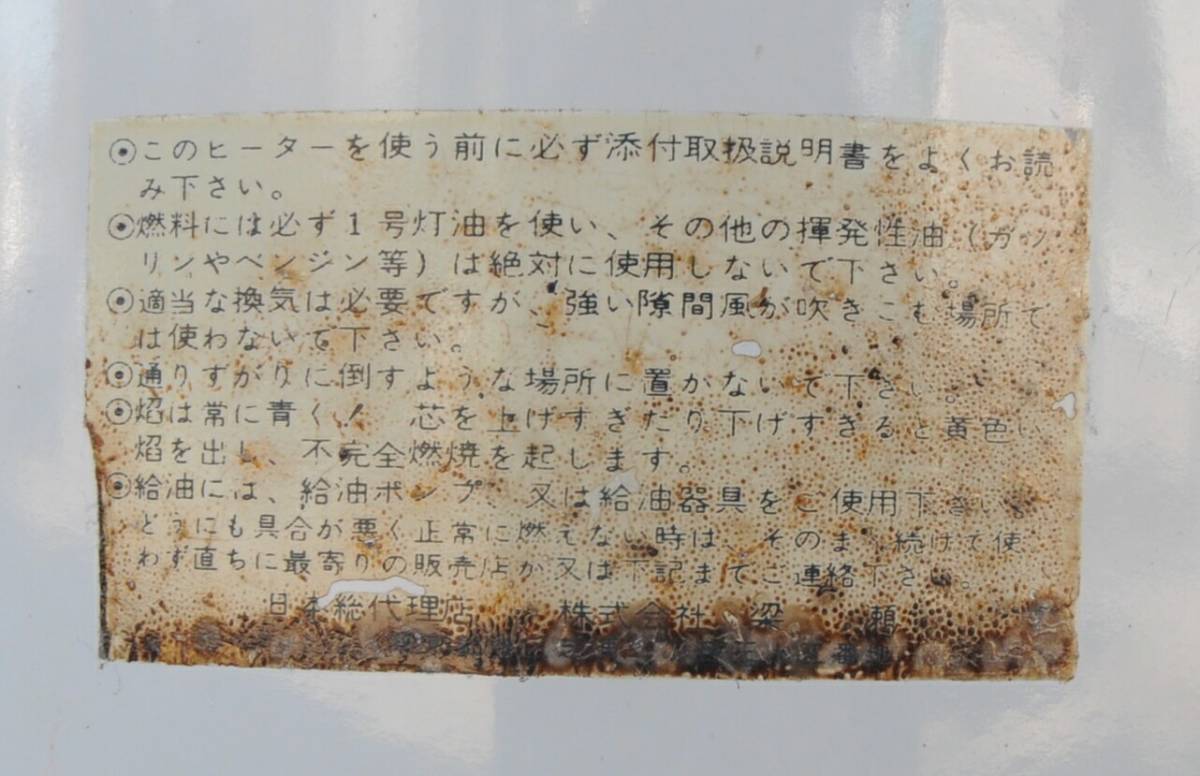 ⦿このヒーターを使う前に必ず添付取扱説明書をよくお読
み下さい。
⦿燃料には必ず1号灯油を使い、その他の揮発性油(ガソ
リンやベンジン等)は絶対に使用しないで下さい。
⦿適当な換気は必要ですが、強い隙間風が吹きこむ場所で
は使わないで下さい。
⦿通りすがりに倒すような場所に置かないで下さい。
⦿焰は常に青く! 芯を上げすぎたり下げすぎると黄色い
焰を出し、不完全燃焼を起します。
⦿給油には、給油ポンプ、又は給油器具をご使用下さい。
どうにも具合が悪く正常に燃えない時は、そのまゝ続けて使
わず直ちに最寄りの販売店か又は下記までご連絡下さい。
日本総代理店 株式会社 梁瀬